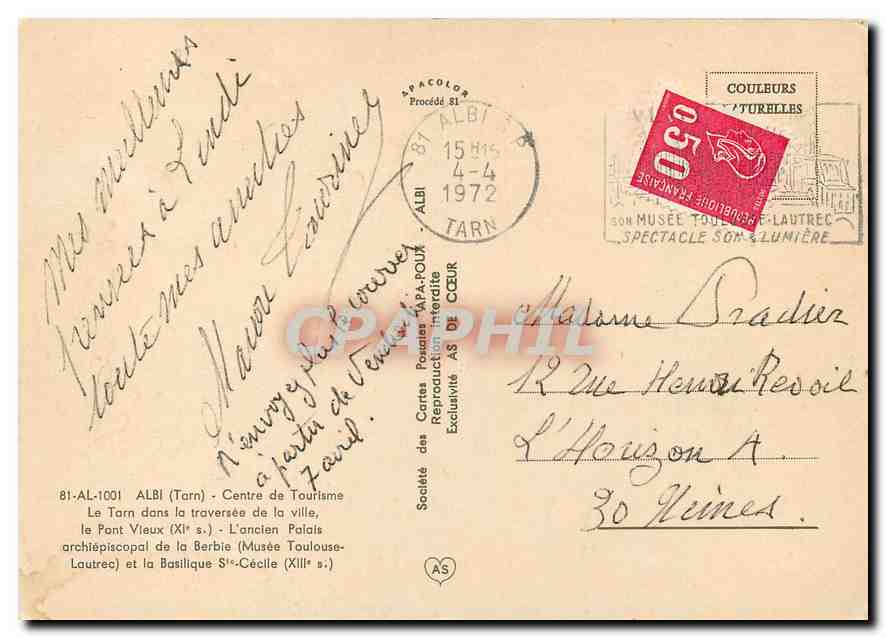 Mes meilleures
pensées à Lundi
toute mes amitiés
Manou
N'envoyez plus le courrier
à partir de Vendredi
7 avril.
81-AL-1001 ALBI (Tarn) - Centre de Tourisme
Le Tarn dans la traversée de la ville,
le Pont Vieux (XIe s.) - L'ancien Palais
archiépiscopal de la Berbie (Musée Toulouse-
Lautrec) et la Basilique Ste-Cécile (XIIIe s.)
APACOLOR
Procédé 81
Société des Cartes Postales APA-POUX - ALBI
Reproduction interdite
Exclusivité AS DE CŒUR
AS
81 ALBI
15 H15
4-4
1972
TARN
COULEURS
NATURELLES
0,50
REPUBLIQUE FRANÇAISE
SON MUSÉE TOULOUSE-LAUTREC
SPECTACLE SON & LUMIÈRE
Madame Pradier
12 Rue Henri Revoil
L'Horizon A.
30 Nîmes.
CPAPHIL